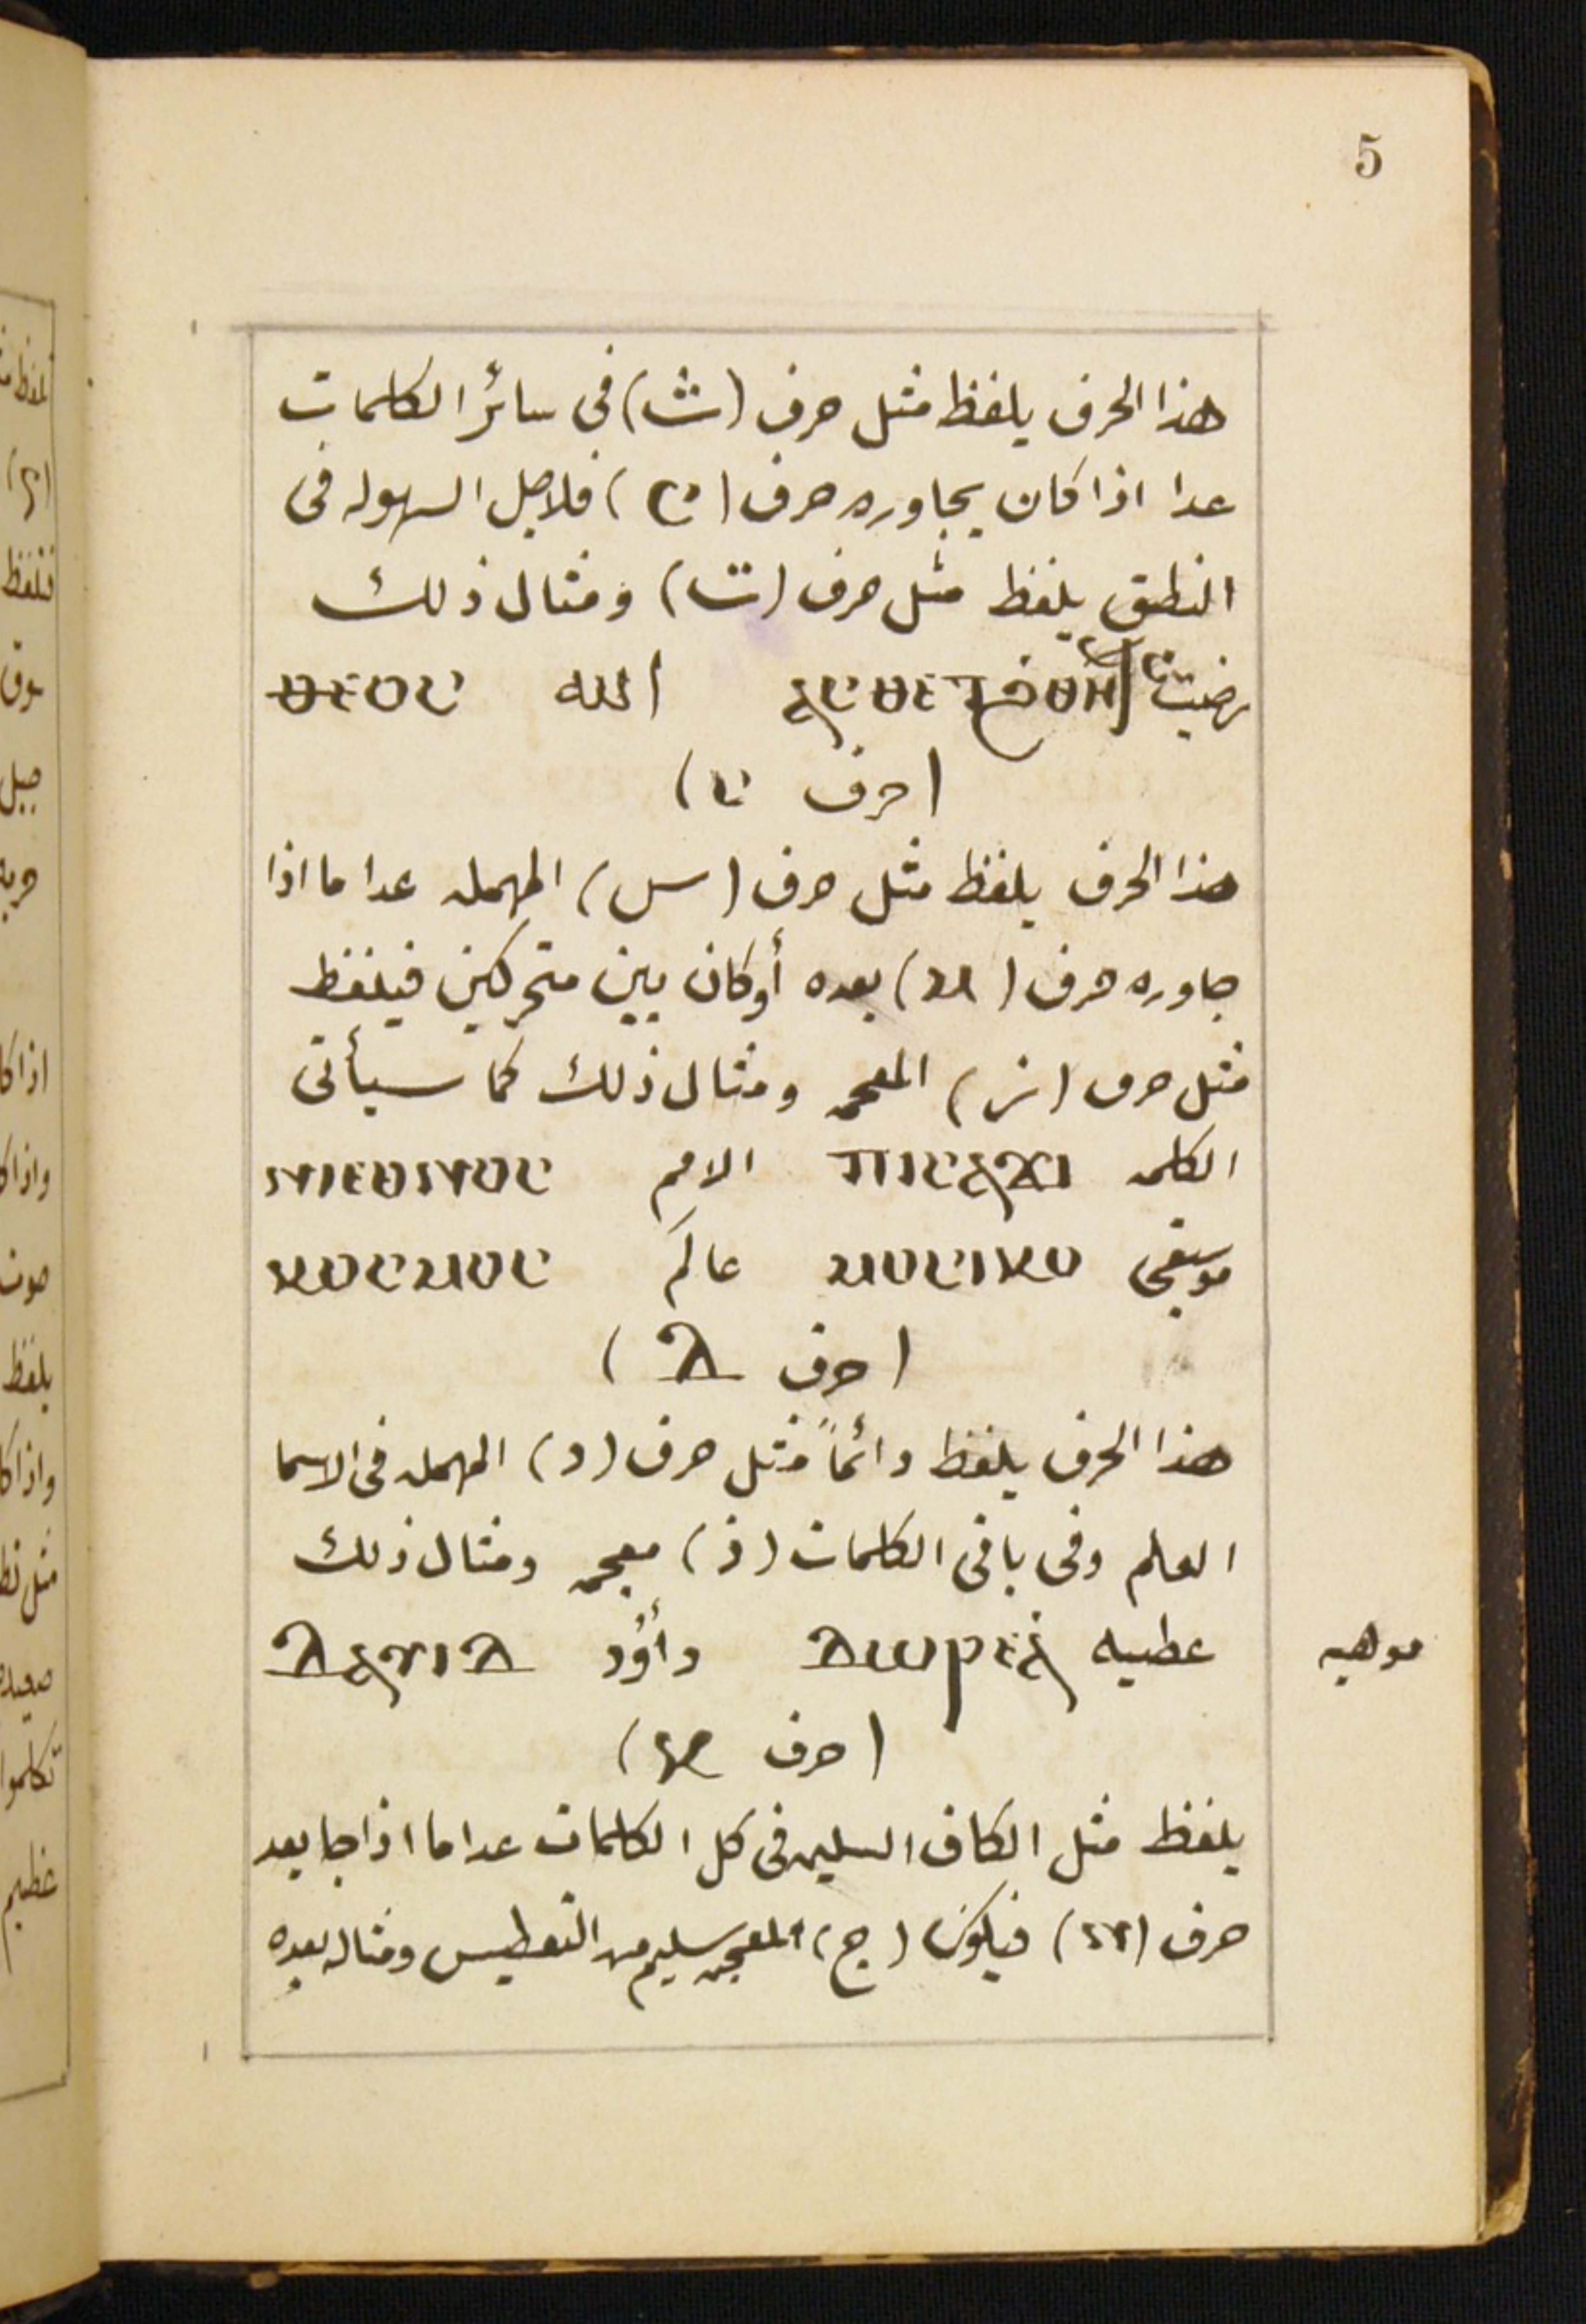 هذا الحرف يلفظ مثل حرف (ث) في سائر الكلمات
عدا اذا كان يجاوره حرف (ⲥ) فلاجل السهوله في
النطق يلفظ مثل حرف (ت) ومثال ذلك
الله ⲑⲉⲟⲥ
(حرف ⲥ)
هذا الحرف يلفظ مثل حرف (س) المهمله عدا ما اذا
جاوره حرف (ⲙ) بعده أو كان بين متحركين فيلفظ
مثل حرف (ز) المعجمه ومثال ذلك كما سيأتى
الكلمه ⲡⲓⲥⲁϫⲓ الامم ⲛⲓⲉⲑⲛⲟⲥ
موسيقى ⲙⲟⲥⲓⲕⲟ عالَم ⲕⲟⲥⲙⲟⲥ
(حرف ⲇ)
هذا الحرف يلفظ دائماً مثل حرف (د) المهمله فى الاسما
العلم وفى باقى الكلمات (ذ) معجمه ومثال ذلك
عطيه ⲇⲱⲣⲉⲁ داؤد ⲇⲁⲩⲓⲇ
موهبه
(حرف)
يلفظ مثل الكاف السليمه فى كل الكلمات عدا ما اذا جا بعد
حرف فيكون (ج) المعجمه سليم من التعطيس ومثاله بعده
5